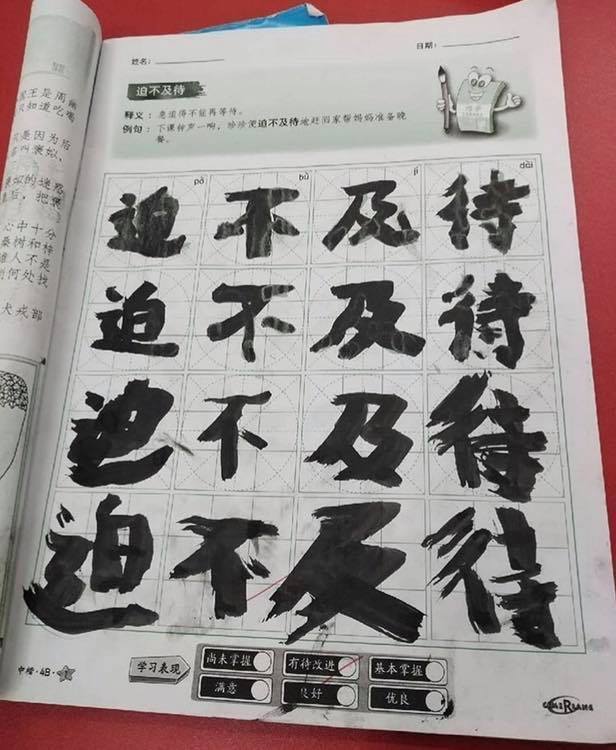 姓名：
日期：
迫不及待
释义：急迫得不能再等待。
例句：下课钟声一响，珍珍便迫不及待地赶回家帮妈妈准备晚餐。
pò bù jí dài
迫不及待
迫不及待
迫不及待
迫不及待
学习表现
尚未掌握 有待改进 基本掌握
满意 良好 优良
中楷·4B·
王是周幽
只知道吃喝
是因为后
叫褒姒，
姒的迷惑
后，把褒
心中十分
桑树和梓
谁人不是
何处找
犬戎部